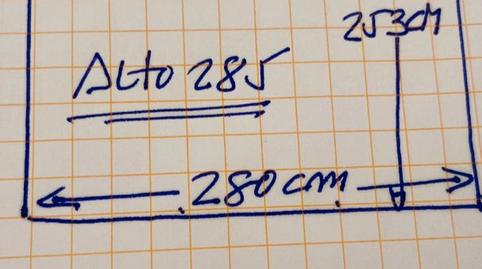 253cm
Alto 285
280cm